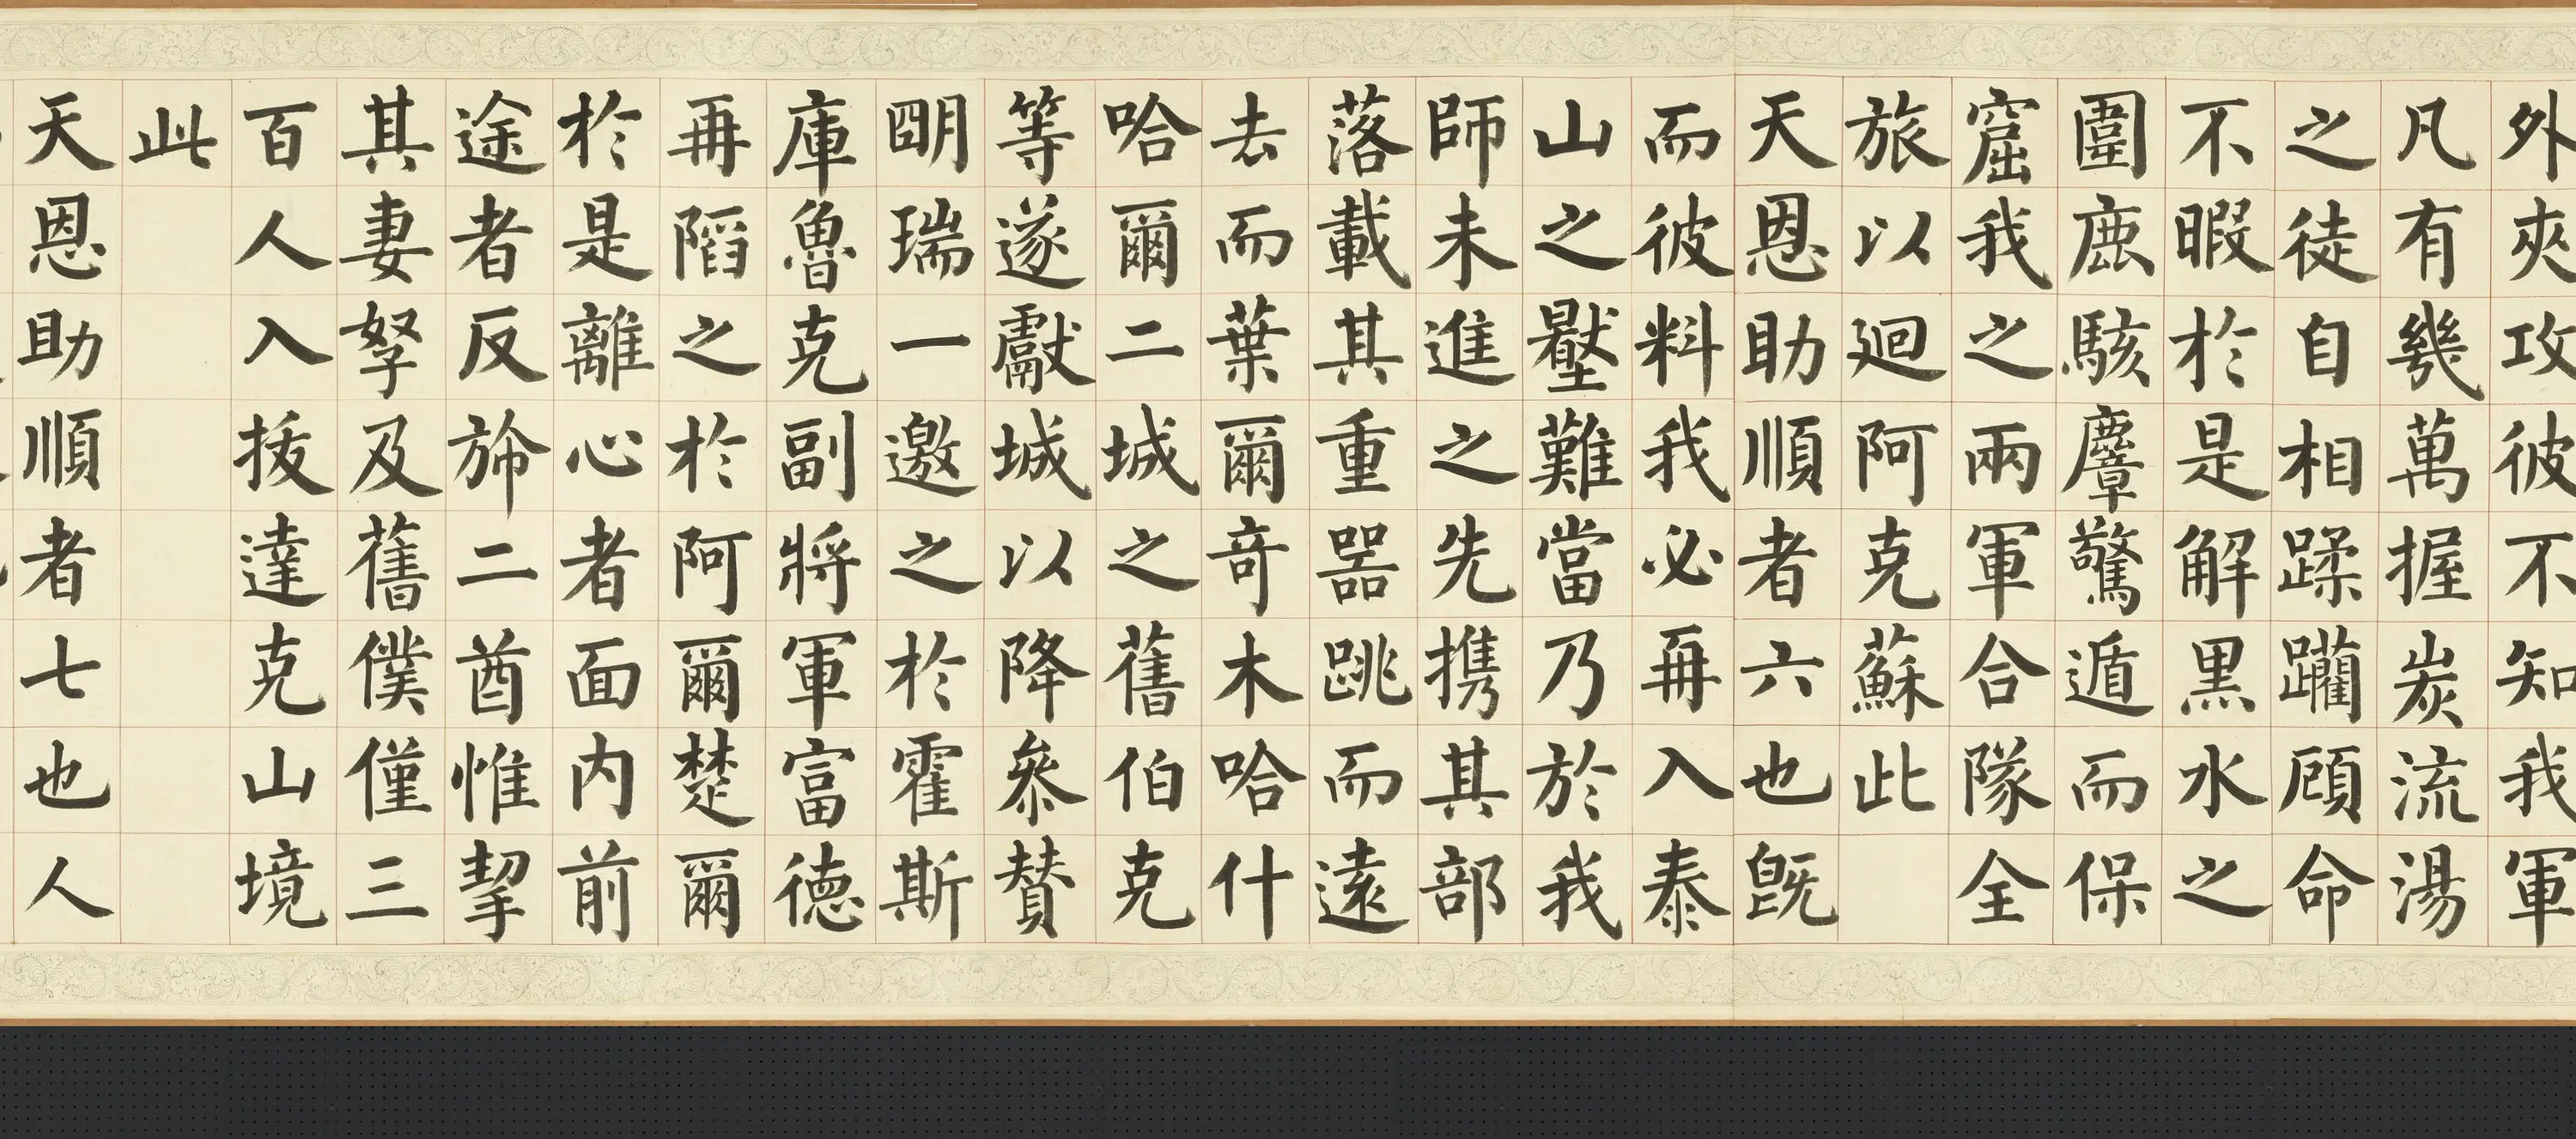 外夾攻彼不知我軍
凡有幾萬握炭流湯
之徒自相蹂躪顧命
不暇於是解黑水之
圍鹿駭麞驚遁而保
窟我之兩軍合隊全
旅以廻阿克蘇此
天恩助順者六也既
而彼料我必再入泰
山之壓難當乃於我
師未進之先携其部
落載其重器跳而遠
去而葉爾奇木哈什
哈爾二城之舊伯克
等遂獻城以降叅贊
明瑞一邀之於霍斯
庫魯克副將軍富德
再蹈之於阿爾楚爾
於是離心者面内前
途者反斾二酋惟挈
其妻孥及舊僕僅三
百人入拔達克山境
此
天恩助順者七也人